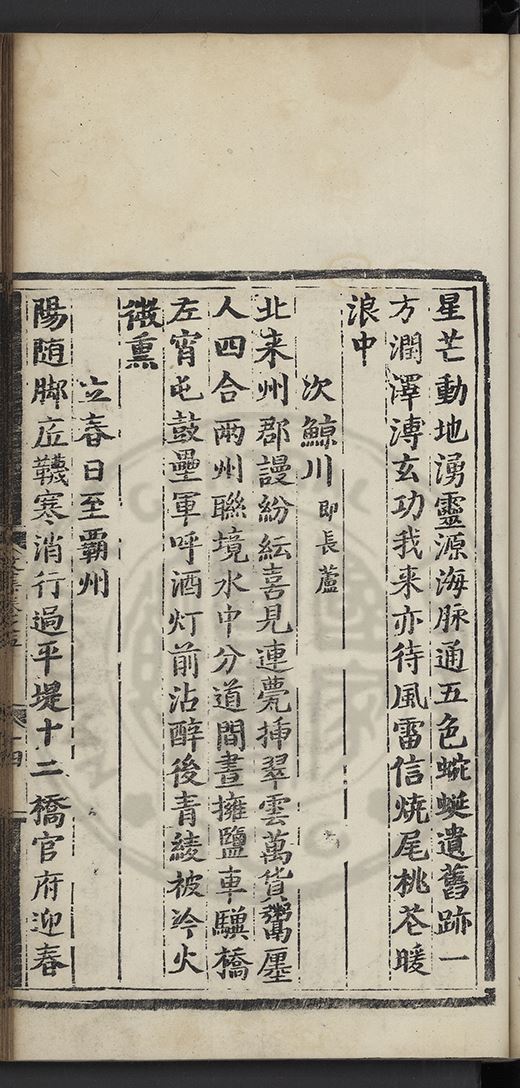 星芒動地湧靈源海脉通五色蜿蜒遺舊跡一
方潤澤溥玄功我来亦待風雷信燒尾桃花暖
浪中
次鯨川即長蘆
北来州郡謾紛紜喜見連甍揷翠雲萬貨鬻廛
人四合兩州聮境水中分道間晝擁鹽車驥橋
左宵屯鼓壘軍呼酒灯前沾醉後青綾被冷火
微熏
立春日至霸州
陽随脚底韈寒消行過平堤十二橋官府迎春